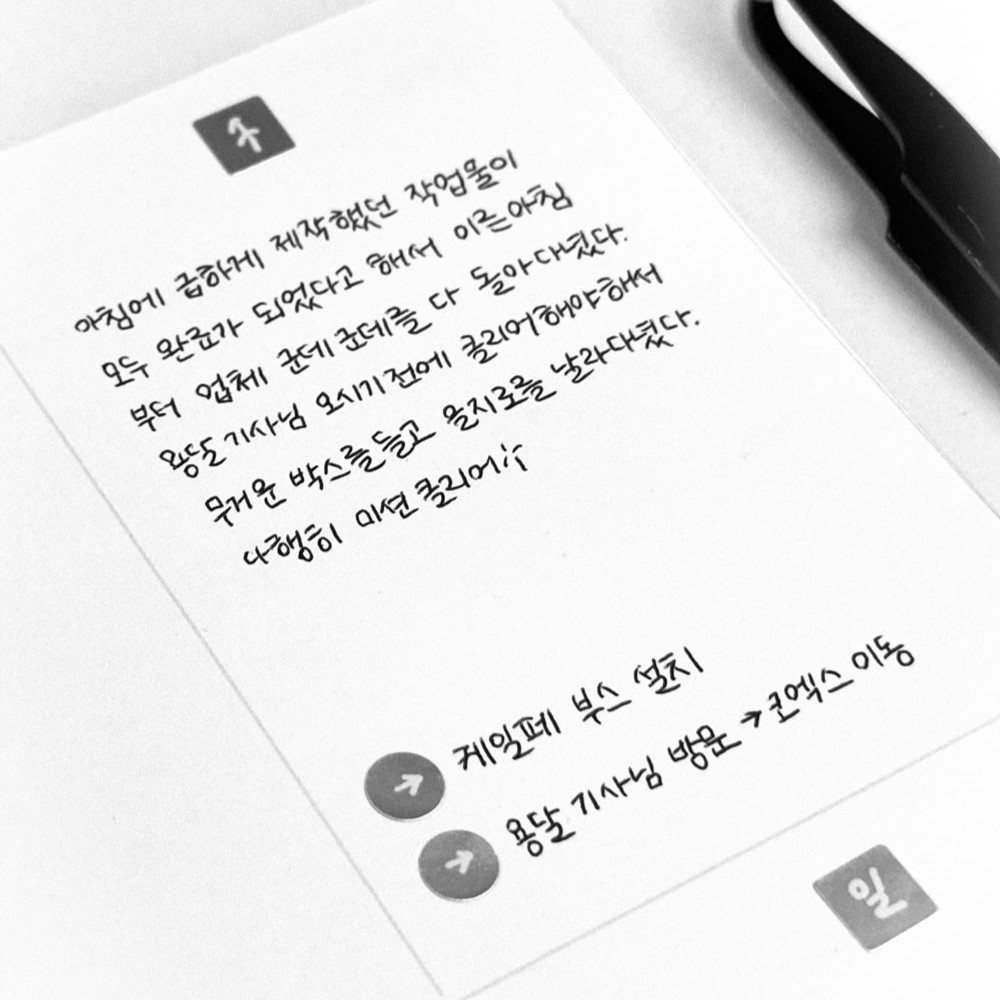 수
아침에 급하게 제작했던 작업물이
모두 완료가 되었다고 해서 이른아침
부터 업체 군데군데를 다 돌아다녔다.
용달기사님 오시기전에 클리어해야해서
무거운 박스를들고 을지로를 날라다녔다.
다행히 미션클리어
→ 케일페 부스 설치
→ 용달기사님 방문 → 코엑스이동
일